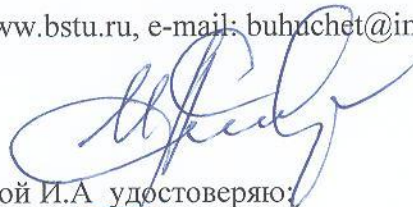 ww.bstu.ru, e-mail: buhuchet@in
ой И.А удостоверяю: